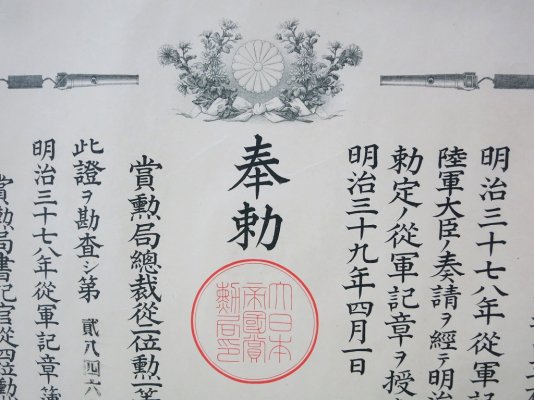 明治三十七八年從軍記
陸軍大臣ノ奏請ヲ經テ明治
勅定ノ從軍記章ヲ授
明治三十九年四月一日
奉勅
大日本
帝國賞
勳局印
賞勲局總裁從二位勲一等
此證ヲ勘査シ第貳八四六
明治三十七八年從軍記章簿
賞勲局書記官從四位勲